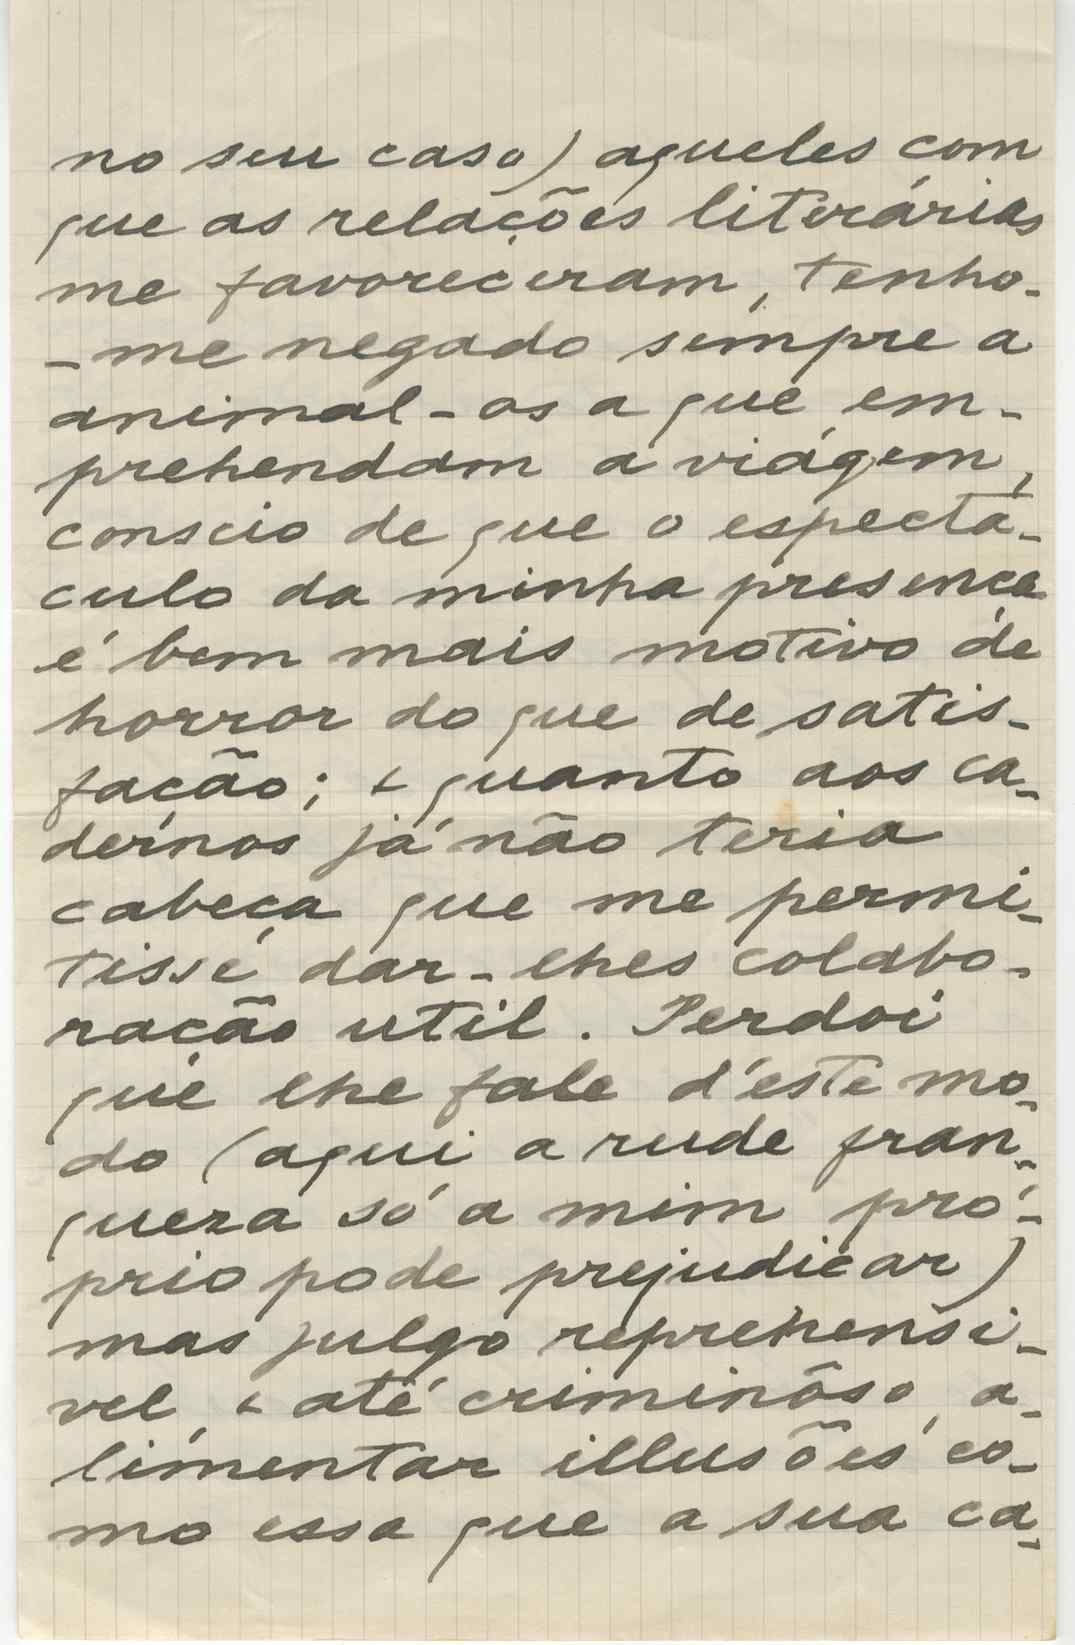 no seu caso) aqueles com
que as relações literárias
me favoreceram, tenho-
-me negado sempre a
animal-os a que em-
prehendam a viágem,
conscio de que o espectá-
culo da minha presença
é bem mais motivo de
horror do que de satis-
fação; & quanto aos ca-
dernos já não teria
cabeça que me permi-
tisse dar-lhes colabo-
ração util. Perdoi
que lhe fale d'este mo-
do (aqui a rude fran-
queza só a mim pró-
prio pode prejudicar)
mas julgo reprehensi-
vel, & até criminôso, a-
limentar illusões co-
mo essa que a sua ca-